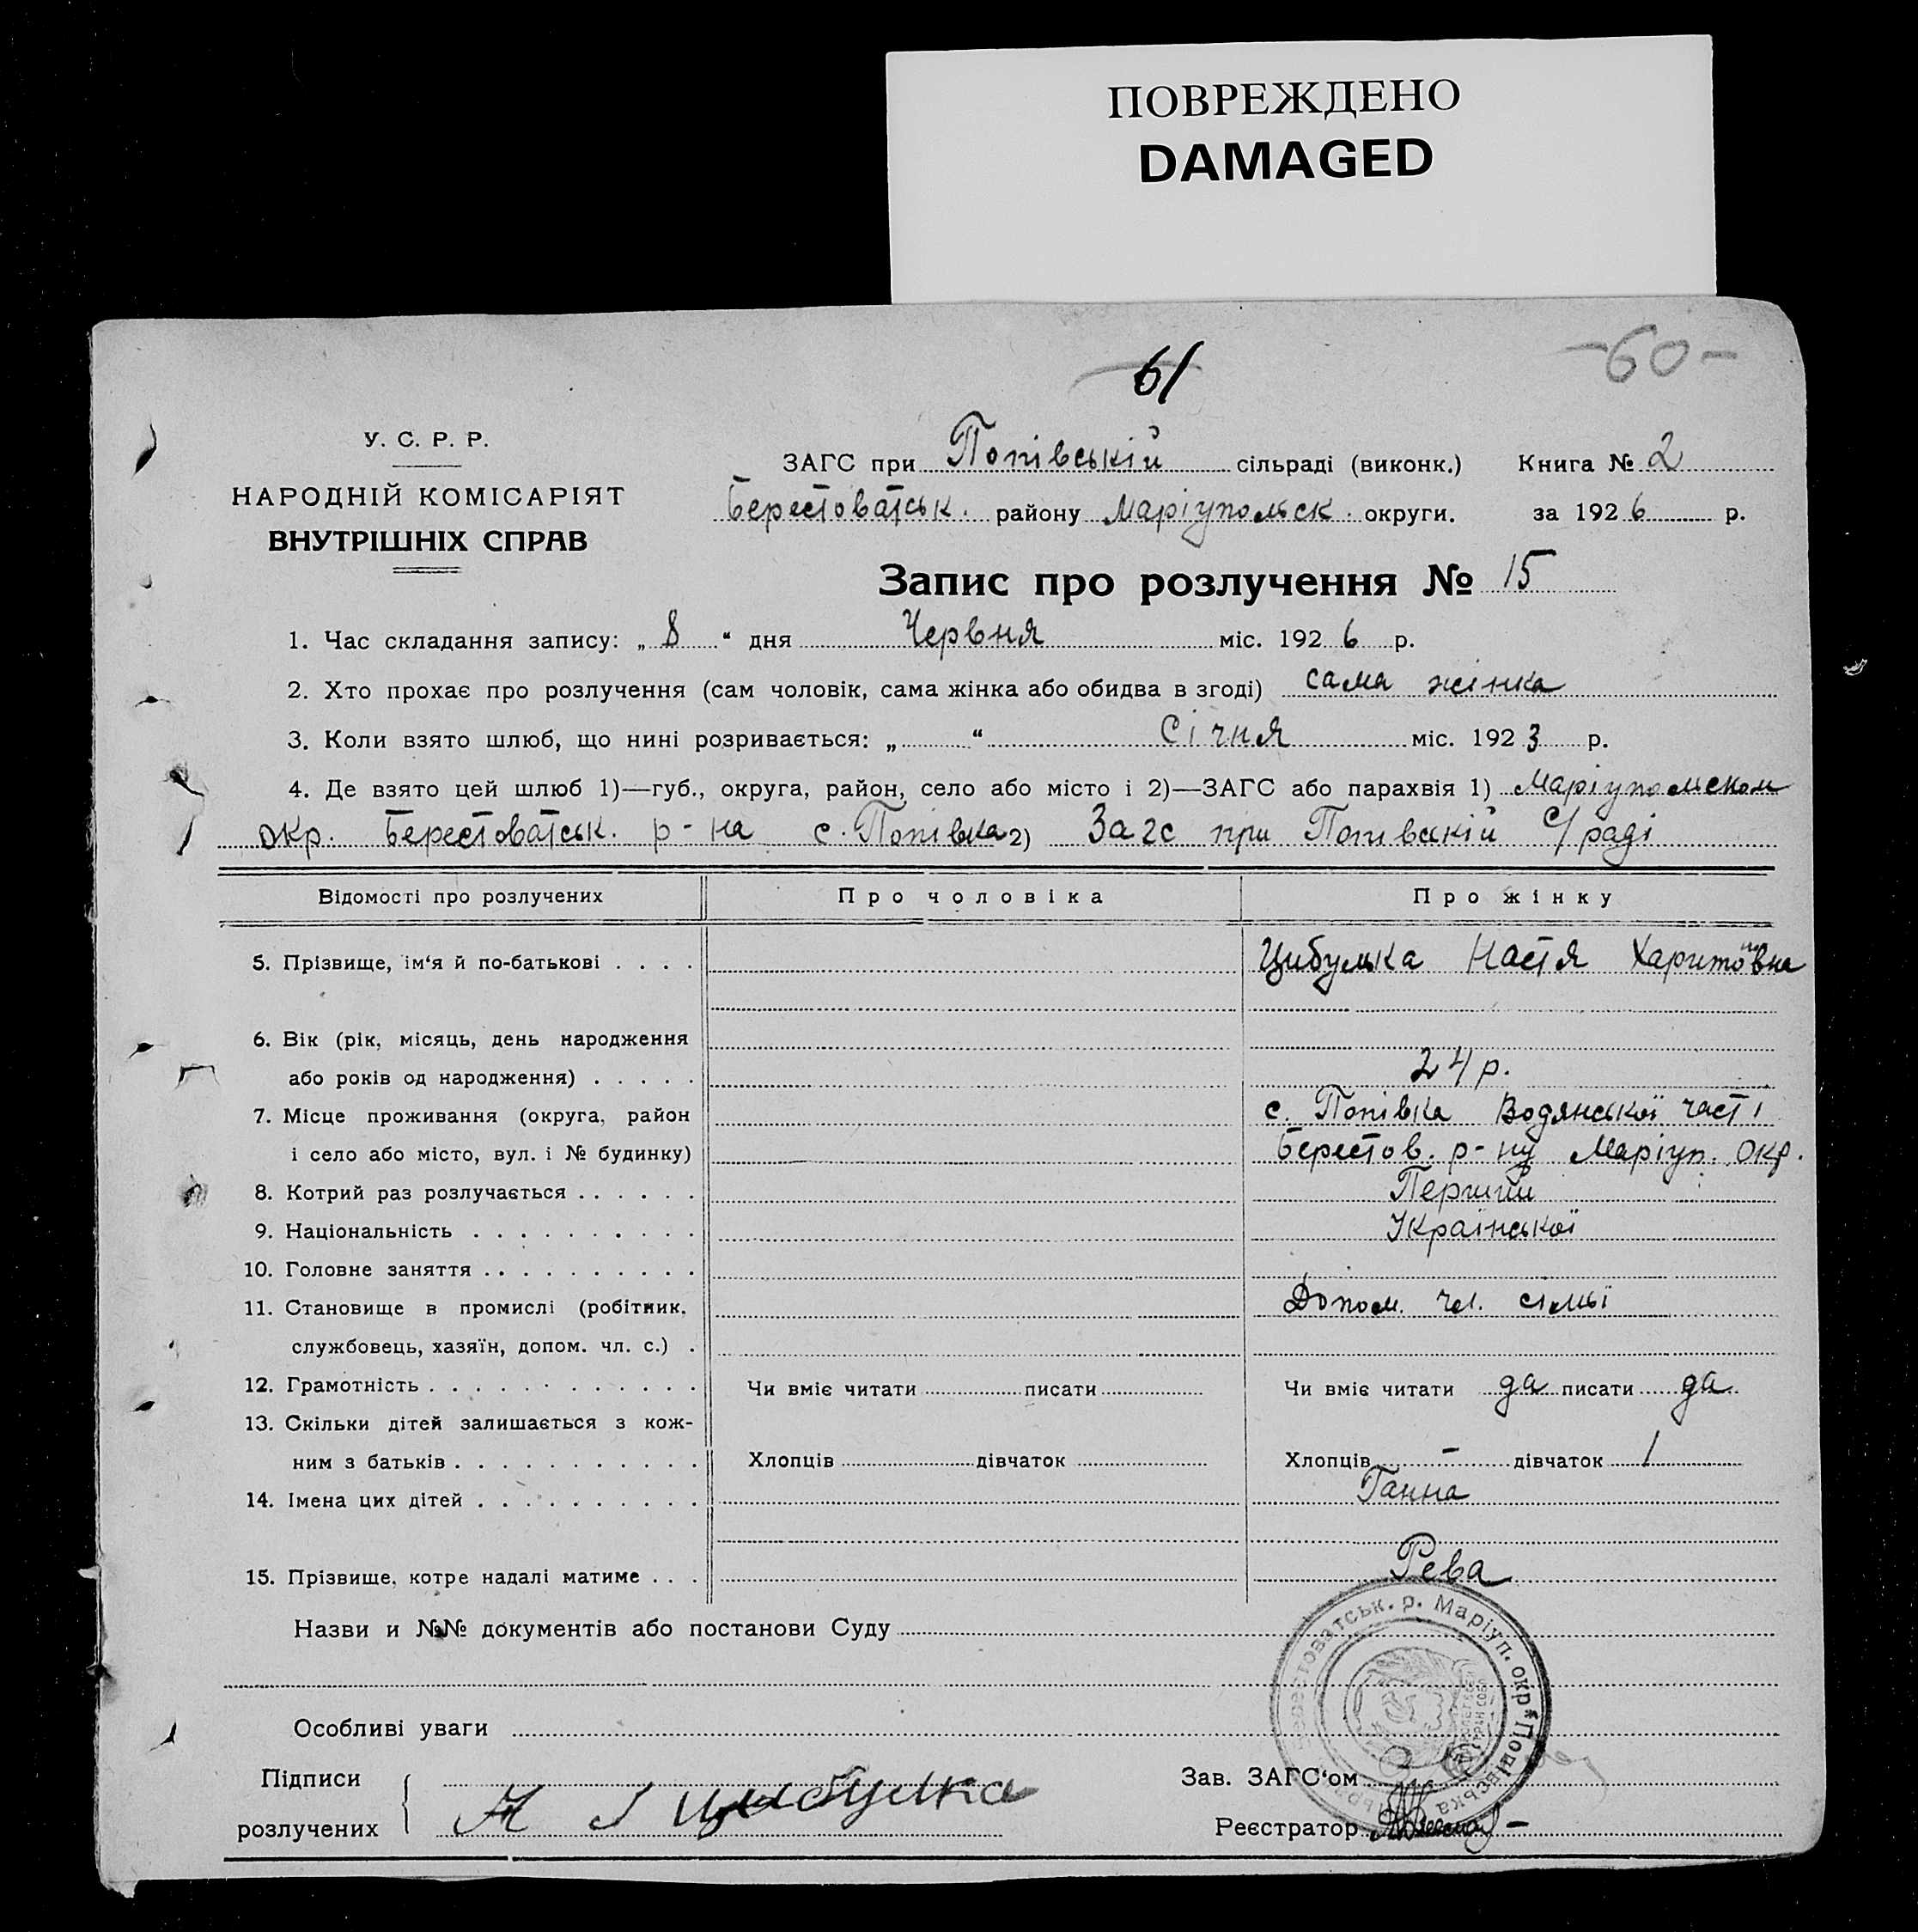 ПОВРЕЖДЕНО
DAMAGED
61
-60-
У. С. Р. Р.
НАРОДНІЙ КОМІСАРІЯТ
ВНУТРІШНІХ СПРАВ
ЗАГС при Попівській сільраді (виконк.) Книга № 2
Берестоватськ. району Маріупольск. округи. за 1926 р.
Запис про розлучення № 15
1. Час складання запису: „ 8 “ дня Червня міс. 1926 р.
2. Хто прохає про розлучення (сам чоловік, сама жінка або обидва в згоді) сама жінка
3. Коли взято шлюб, що нині розривається: „ “ Січня міс. 1923 р.
4. Де взято цей шлюб 1)—губ., округа, район, село або місто і 2)—ЗАГС або парахвія 1) Маріупольском
окр. Берестоватськ. р-на с. Попівка 2) Загс при Попівській с/раді
Відомості про розлучених Про чоловіка Про жінку
5. Прізвище, ім'я й по-батькові . . . . Цибулька Настя Харитоівна
6. Вік (рік, місяць, день народження
або років од народження) . . . . . 24 р.
7. Місце проживання (округа, район с. Попівка Водянської часті
і село або місто, вул. і № будинку) Берестов. р-ну Маріуп. окр.
8. Котрий раз розлучається . . . . . . Перший
9. Національність . . . . . . . . . . Української
10. Головне заняття . . . . . . . . . .
11. Становище в промислі (робітник, Допом. чл. сімьї
службовець, хазяїн, допом. чл. с.) .
12. Грамотність . . . . . . . . . . . . Чи вміє читати писати Чи вміє читати да писати да
13. Скільки дітей залишається з кож-
ним з батьків . . . . . . . . . . . Хлопців дівчаток Хлопців – дівчаток 1
14. Імена цих дітей . . . . . . . . . . Ганна
15. Прізвище, котре надалі матиме . . . Рева
Назви и №№ документів або постанови Суду
Берестоватськ. р. Маріуп. окр. Попівська
Особливі уваги
Підписи
розлучених
Н Цибулка
Зав. ЗАГС'ом
Реєстратор